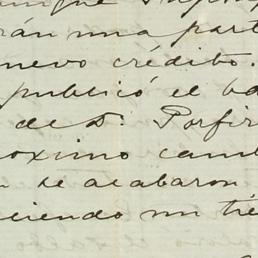 rán una part
nuevo crédito.
publicó el ba
de D. Porfir
oximo camb
n se acabaron
ciendo un tie